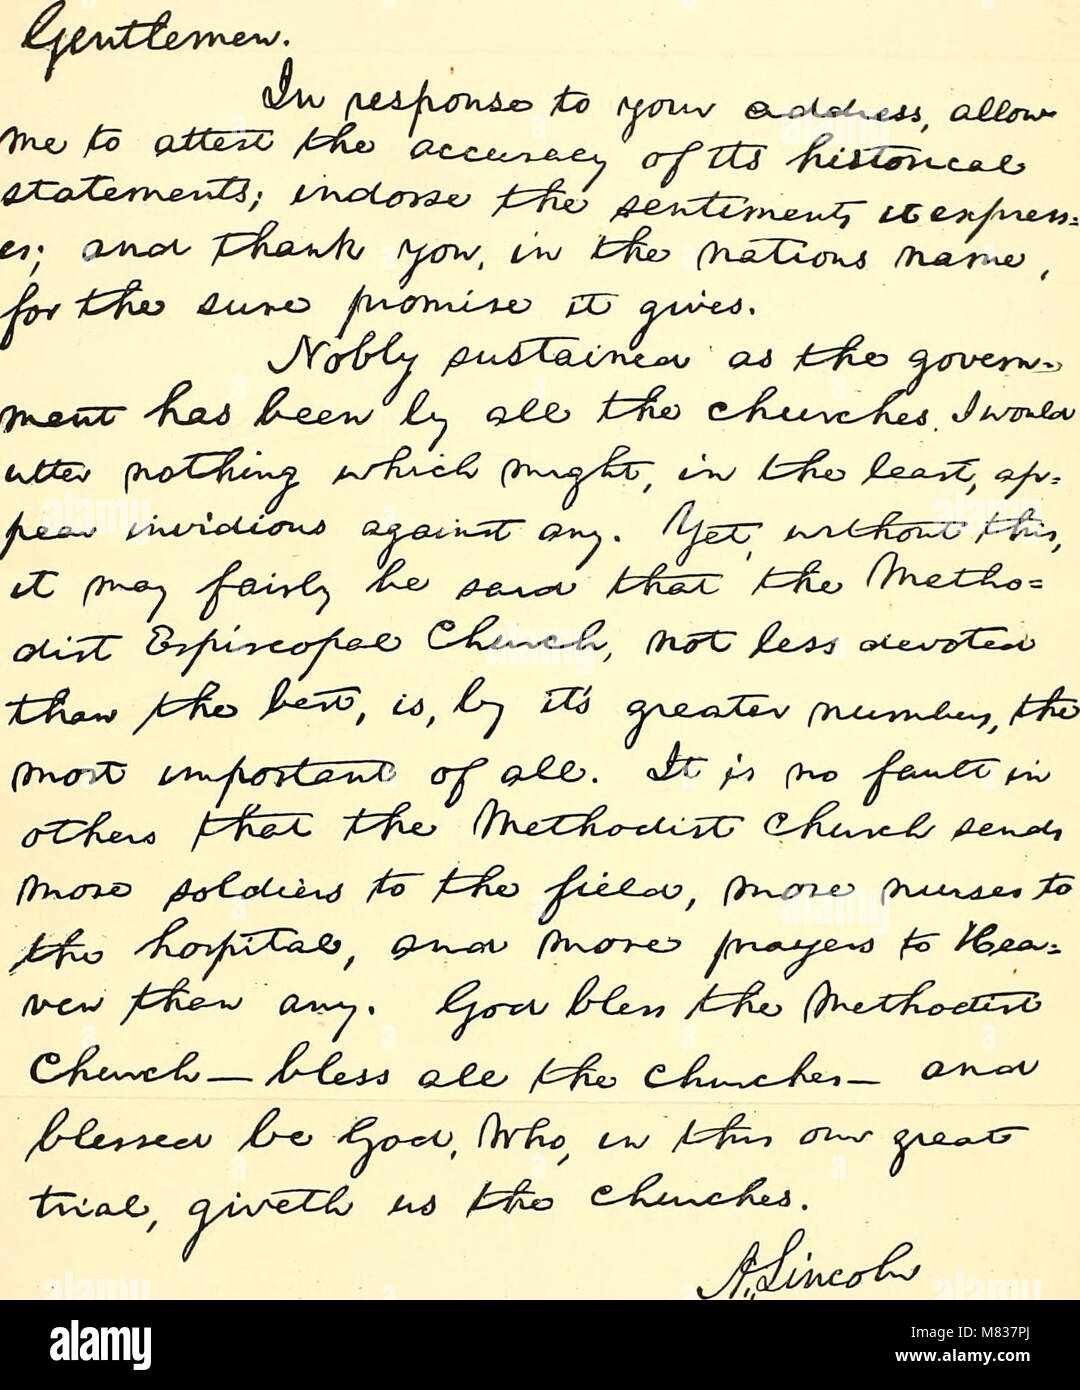 Gentlemen.
In response to your address, allow
me to attest the accuracy of its historical
statements; indorse the sentiments it express=
es; and thank you, in the nations name,
for the sure promise it gives.
Nobly sustained as the govern=
ment has been by all the churches, I would
utter nothing which might, in the least, ap=
pear invidious against any. Yet, without this,
it may fairly be said that the Metho=
dist Episcopal Church, not less devoted
than the best, is, by it's greater numbers, the
most important of all. It is no fault in
others that the Methodist Church sends
more soldiers to the field, more nurses to
the hospital, and more prayers to Hea=
ven than any. God bless the Methodist
Church — bless all the churches — and
blessed be God, Who, in this our great
trial, giveth us the churches.
A. Lincoln
alamy
Image ID: M837PJ
www.alamy.com